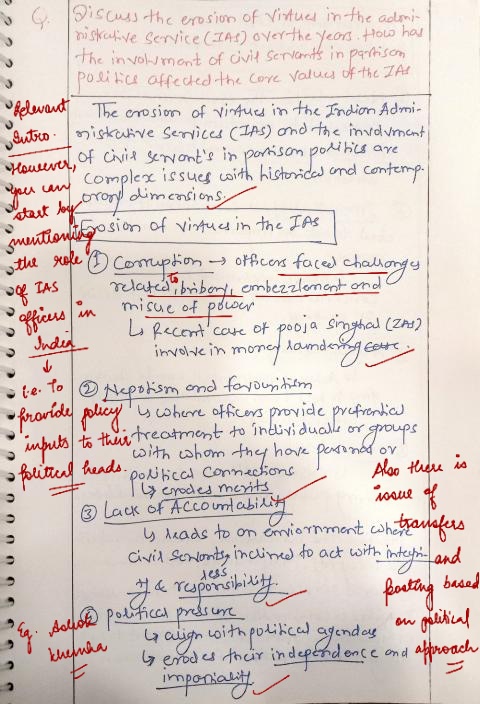 Q. Discuss the erosion of virtues in the admi-
nistrative service (IAS) over the years. How has
the involvment of civil servants in partison
politics affected the core values of the IAS
The erosion of virtues in the Indian Admi-
niskative Services (IAS) and the involvment
of civil servant's in partison politics are
complex issues with historical and contemp-
orary dimensions.
Relevant
Intro.
However,
you can
start by
mentioning
the role
of IAS
officers in
India
↓
i.e. To
provide policy
inputs to their
political heads.
Erosion of virtues in the IAS
① Corruption → officers faced challanges
related to bribery, embezzlement and
misue of power
↳ Recent case of pooja singhal (IAS)
involve in money laundering case.
② Nepotism and favouritism
↳ where officers provide prefrential
treatment to individuals or groups
with whom they have personal or
political connections
↳ erodes merits
③ Lack of Accountability
↳ leads to an enviornment where
civil servants, inclined to act with integri-
ty & less responsibility.
Also there is
issue of
transfers
and
posting based
on political
approach
④ political pressure
↳ align with political agendas
↳ erodes their independence and
impartiality
Eg. Ashok
khemka